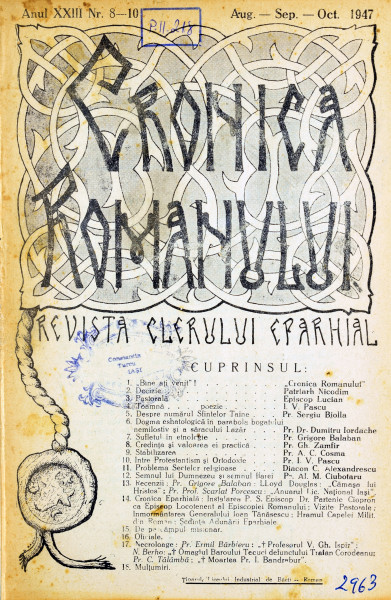 Anul XXIII Nr. 8—10
P.II.218
Aug. — Sep. — Oct. 1947
CRONICA
ROMANULUI
REVISTA CLERULUI EPARHIAL
Constanta
Turcu
IAȘI
CUPRINSUL:
1. „Bine ați venit”! . . . „Cronica Romanului”
2. Decizie . . . Patriarh Nicodim
3. Pastorală . . . Episcop Lucian
4. Toamnă . . . poezie . . . I. V. Pascu
5. Despre numărul Sfintelor Taine . . . Pr. Sergiu Bioila
6. Dogma eshatologică în parabola bogatului
nemilostiv și a săracului Lazăr . . . Pr. Dr. Dumitru Iordache
7. Sufletul în etnologie . . . Pr. Grigore Balaban
8. Credința și valoarea ei practică . . . Pr. Gh. Zamfir
9. Stabilizarea . . . Pr. A. C. Cosma
10. Intre Protestantism și Ortodoxie . . . Pr. I. V. Pascu
11. Problema Sectelor religioase . . . Diacon C. Alexandrescu
12. Semnul lui Dumnezeu și semnul Barei . . . Ps. Al. M. Ciubotaru
13. Recenzii: Pr. Grigore Balaban: LLoyd Douglas: „Cămașa lui
Hristos”; Pr. Prof. Scarlat Porcescu: „Anuarul Lic. Național Iași”
14. Cronica Eparhială: Instalarea P. S. Episcop Dr. Partenie Ciopron
ca Episcop Locotenent al Episcopiei Romanului; Vizite Pastorale;
Inmormântarea Generalului Ioan Tănăsescu; Hramul Capelei Milit.
din Roman; Ședința Adunării Eparhiale.
15. De pe câmpul misionar.
16. Oficiale.
17. Necrologe: Pr. Ermil Bărbieru: „† Profesorul V. Gh. Ispir”;
N. Berho: „† Omagiul Baroului Tecuci defunctului Traian Corodeanu;
Pr. C. Tălămbă: „† Moartea Pr. I. Bandrabur”.
18. Mulțumiri.
Tiparul Liceului Industrial de Băeți — Roman
2963